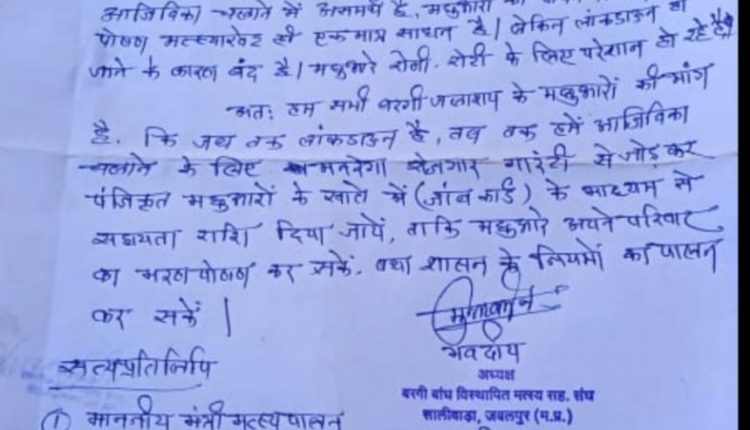 आजिविका चलाने में असमर्थ है, मछुआरों का
पोषण मत्स्याखेट ही एकमात्र साधन है। लेकिन लाकडाउन हो
जाने के कारण बंद है। मछुआरे रोजी-रोटी के लिए परेशान हो रहे है।
अतः हम सभी बरगी जलाशय के मछुआरों की मांग
है, कि जब तक लांकडाउन है, तब तक हमें आजिविका
चलाने के लिए मनरेगा रोजगार गारंटी से जोड़ कर
पंजिकृत मछुआरों के खाते में (जांब कार्ड) के माध्यम से
सहायता राशि दिया जायें, ताकि मछुआरे अपने परिवार
का भरण पोषण कर सकें, तथा शासन के नियमों का पालन
कर सकें।
भवदीय
सत्यप्रतिलिपि
अध्यक्ष
बरगी बांध विस्थापित मत्स्य सह. संघ
① माननीय मंत्री मत्स्य पालन
सालीवाड़ा, जबलपुर (म.प्र.)